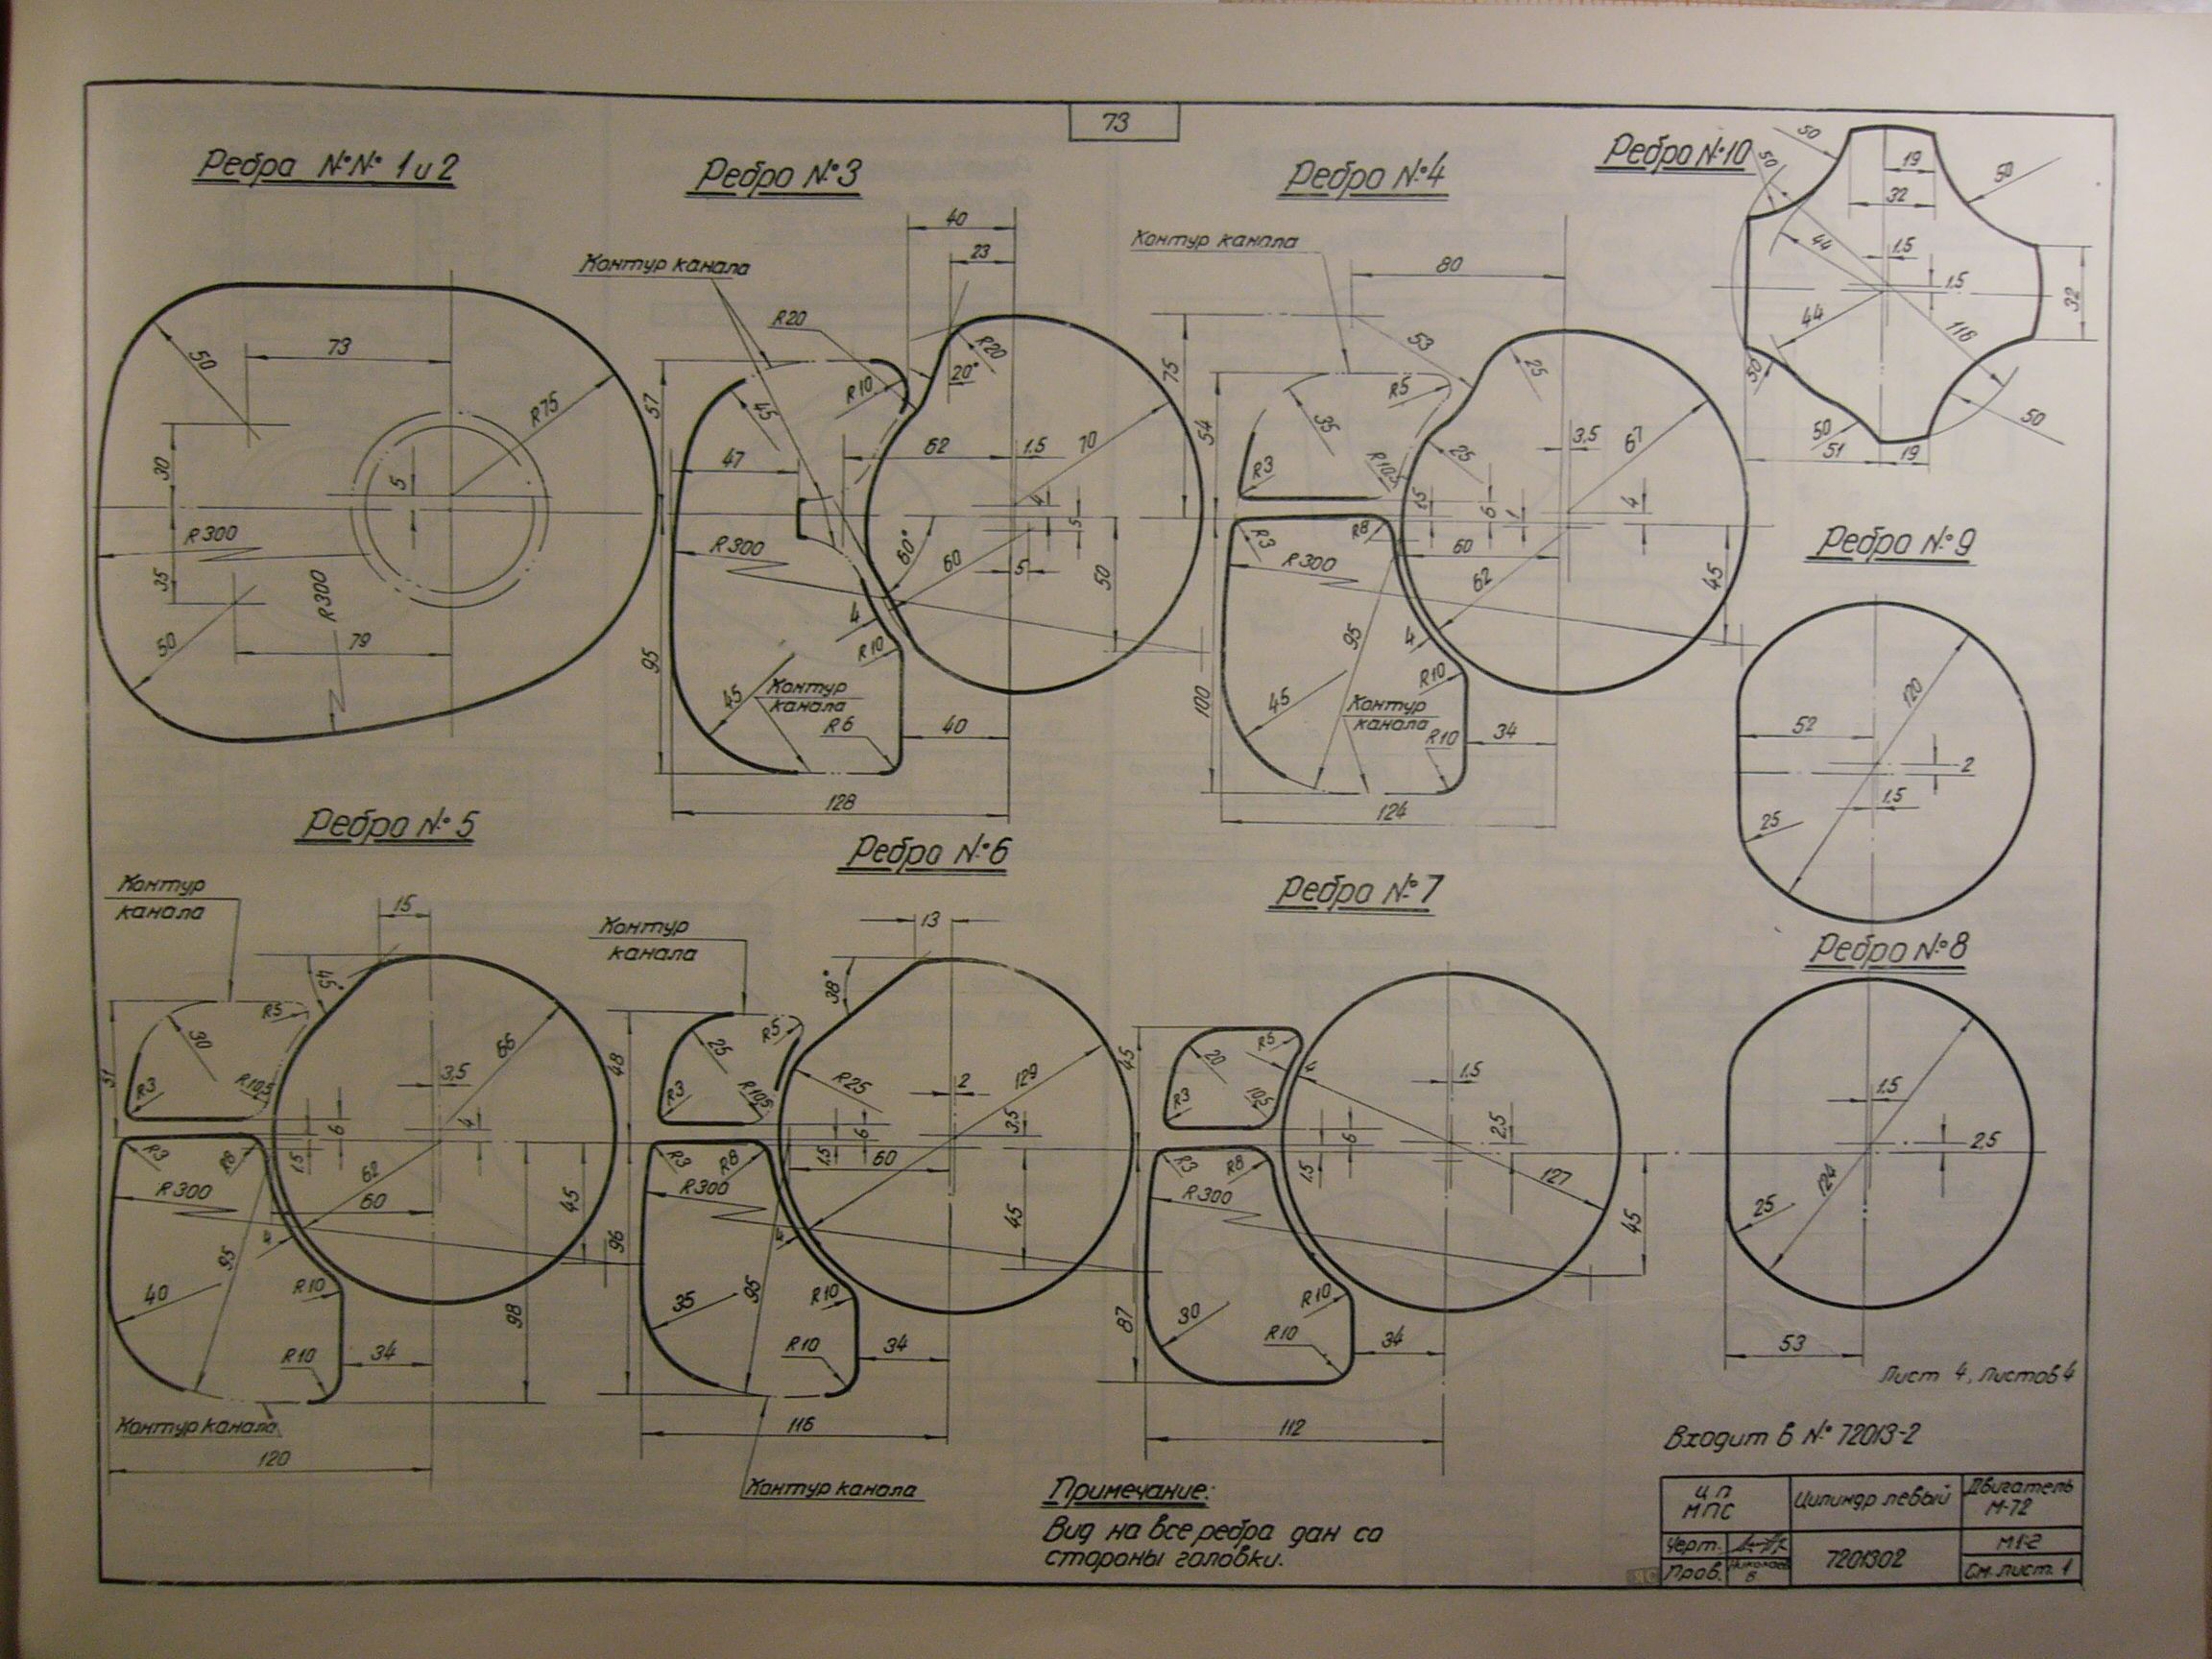 73
Ребра №№ 1 и 2
50
73
R75
30
5
R300
35
R300
50
79
Ребро №3
40
23
Контур канала
R20
R20
20°
R10
57
45
47
62
1.5
70
4
5
R300
60°
60
5
50
4
R10
95
45
Контур
канала
R6
40
128
Ребро №4
Контур канала
80
53
75
25
R5
54
35
3,5
67
25
R3
R10,5
1,5
6
1
4
R3
R8
R300
60
62
45
95
4
R10
100
45
Контур
канала
R10
34
124
Ребро №10
50
50
19
50
32
44
1.5
1.5
32
44
116
50
50
50
51
19
Ребро №9
120
52
2
1.5
25
Ребро №5
Контур
канала
15
45°
R5
51
30
66
3,5
R3
R10,5
6
4
1.5
R3
R8
62
R300
60
45
4
95
96
40
R10
98
R10
34
Контур канала
120
Ребро №6
Контур
канала
13
38°
R5
48
25
129
R3
R25
2
R10,5
3,5
6
1.5
R3
R8
60
R300
45
4
95
35
R10
R10
34
116
Контур канала
Ребро №7
45
R5
20
4
1.5
R3
10,5
2,5
6
1.5
R3
R8
127
R300
45
87
30
R10
R10
34
112
Ребро №8
1.5
2,5
124
25
53
Лист 4, Листов 4
Входит в № 72013-2
Примечание:
Вид на все ребра дан со
стороны головки.
ЦП
МПС
Цилиндр левый
Двигатель
М-72
Черт.
7201302
М1:2
Пров.
Николаев
В
См. лист. 1